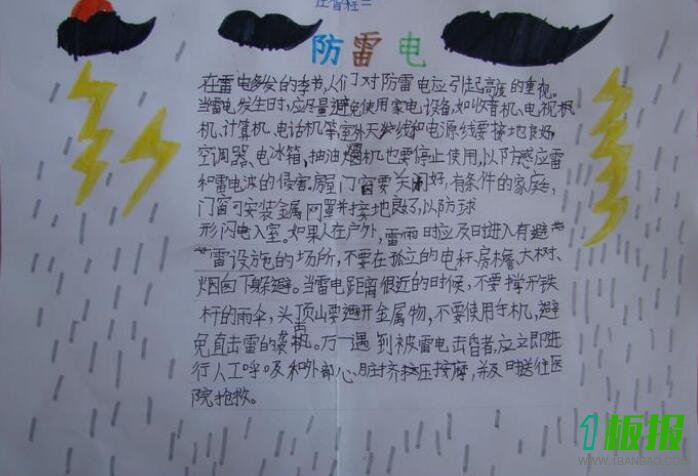 防雷电
在雷电多发的季节,人们对防雷电应引起高度的重视。
当雷电发生时,应尽量避免使用家电设备,如收音机、电视机
机、计算机、电话机等,室外天线和电源线要接地良好,
空调器、电冰箱、抽油烟机也要停止使用,以防感应雷
和雷电波的侵害。房屋门窗要关闭好,有条件的家庭,
门窗可安装金属网罩并接地良好,以防球
形闪电入室。如果人在户外,雷雨时应及时进入有避
雷设施的场所,不要在孤立的电杆、房檐、大树、
烟囱下躲避。当雷电距离很近的时候,不要撑开铁
杆的雨伞,头顶上要避开金属物,不要使用手机,避
免直击雷的袭击。万一遇到被雷电击昏者,应立即进
行人工呼及和外部心脏挤压按摩,并及时送往医
院抢救。
1板报
WWW.1BANBAO.COM